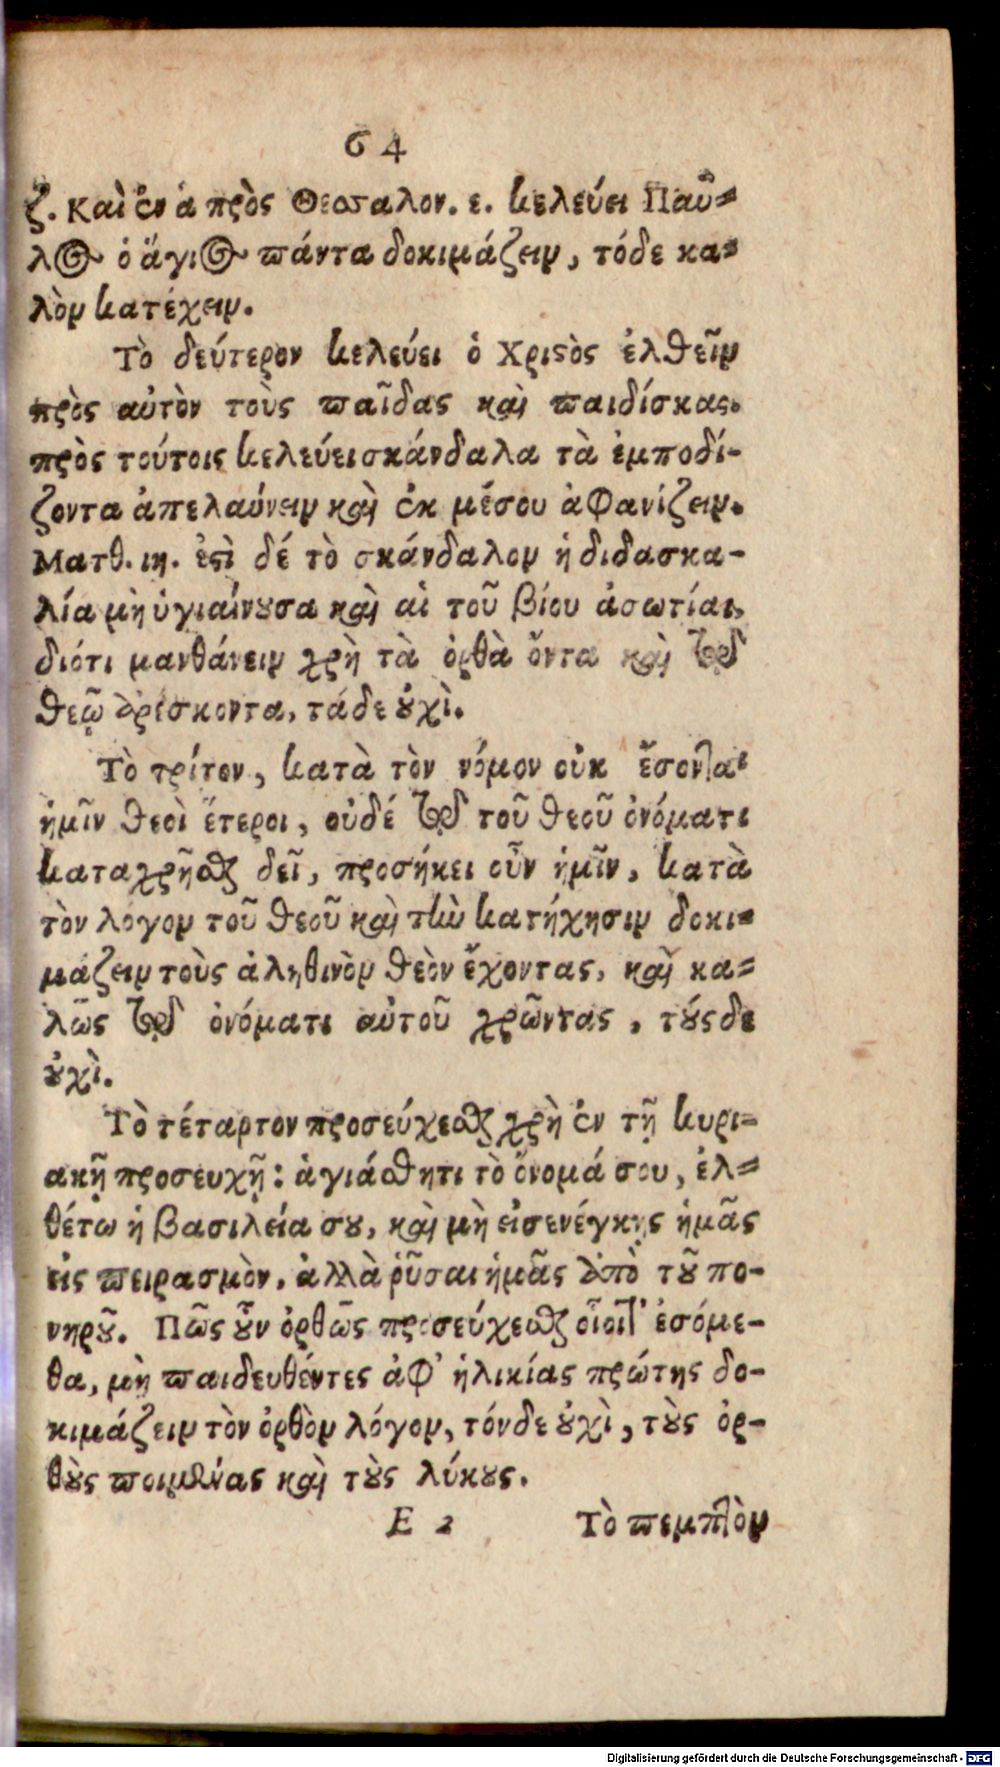 64
ζ. Καὶ ἐν ά πρὸς Θεσσαλον. ε. κελεύει Παῦ=
λος ὁ ἅγιος πάντα δοκιμάζειν, τόδε κα=
λὸν κατέχειν.
Τὸ δεύτερον κελεύει ὁ Χριϛὸς ἐλθεῖν
πρὸς αὐτὸν τοὺς παῖδας καὶ παιδίσκας.
πρὸς τούτοις κελεύει σκάνδαλα τὰ ἐμποδί-
ζοντα ἀπελαύνειν καὶ ἐκ μέσου ἀφανίζειν.
Ματθ. ιη. ἐϛὶ δέ τὸ σκάνδαλον ἡ διδασκα-
λία μὴ ὑγιαίνȣσα καὶ αἱ τοῦ βίου ἀσωτίαι,
διότι μανθάνειν χρὴ τὰ ὀρθὰ ὄντα καὶ τῷ
θεῷ ἀρέσκοντα, τάδε ȣ̓χὶ.
Τὸ τρίτον, κατὰ τὸν νόμον οὐκ ἔσονται
ἡμῖν θεοὶ ἕτεροι, οὐδέ τῷ τοῦ θεοῦ ὀνόματι
καταχρῆσθαι δεῖ, προσήκει οὖν ἡμῖν, κατὰ
τὸν λόγον τοῦ θεοῦ καὶ τὴν κατήχησιν δοκι=
μάζειν τοὺς ἀληθινὸν θεὸν ἔχοντας, καὶ κα=
λῶς τῷ ὀνόματι αὐτοῦ χρῶντας, τȣ́ςδε
ȣ̓χὶ.
Τὸ τέταρτον προσεύχεσθαι χρὴ ἐν τῇ κυρι-
ακῇ προσευχῇ: ἁγιάσθητι τὸ ὄνομά σου, ἐλ=
θέτω ἡ βασιλεία σȣ, καὶ μὴ εἰσενέγκῃς ἡμᾶς
εἰς πειρασμὸν, ἀλλὰ ῥῦσαι ἡμᾶς ἀπὸ τȣ͂ πο-
νηρȣ͂. Πῶς ȣ͂̓ν ὀρθῶς προσεύχεσθαι οἷοίτ' ἐσόμε-
θα, μὴ παιδευθέντες ἀφ' ἡλικίας πρώτης δο-
κιμάζειν τὸν ὀρθὸν λόγον, τόνδε ȣ̓χὶ, τȣ̀ς ὀρ-
θȣ̀ς ποιμένας καὶ τȣ̀ς λύκȣς.
E 2 Τὸ πεμπτὸν
Digitalisierung gefördert durch die Deutsche Forschungsgemeinschaft - DFG